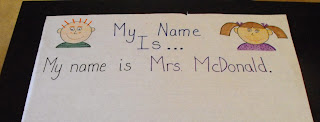 My Name
Is...
My name is Mrs. McDonald.